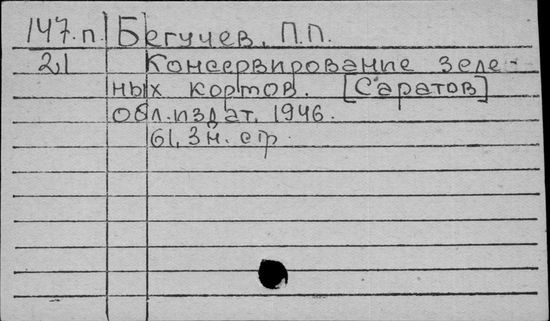 147.п. Бегучев, П.П.
21 Консервирование зеле-
ных кортов. [Саратов]
Обл.издат. 1946.
61, 3 н. стр.